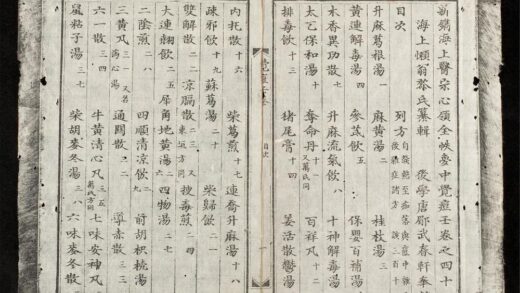 新鐫海上醫宗心領全帙夢中覺痘壬卷之四十
海上懶翁黎氏纂輯 後學唐郿武春軒奉
目次 列方 自發熱至痂落與痘中雜
升麻葛根湯 一 麻黃湯 二 桂枝湯 三
黃連解毒湯 四 參芪飲 五 保嬰百補湯
木香異功散 七 升麻流氣飲 八 十神解毒湯
太乙保和湯 十 奪命丹 十一 又萬氏同 百祥丸 十二
排毒飲 十三 猪尾膏 十四 羌活散鬱湯
目次
內托散 十六 柴葛煎 十七 連喬升麻湯 十八
疎邪飲 十九 蘇葛湯 二十 柴歸飲 二一
雙解散 二二 涼膈散 二三 東垣方同 搜毒煎 二四
大連翹飲 二五 犀角地黃湯 二六 四物湯 二七
二陰煎 二八 四順清涼飲 二九 前胡枳梹湯
三黃丸 三一 通關散 三二 導赤散 三三
六一散 三四 牛黃清心丸 三五 萬氏方同 七味安神丸
鼠粘子湯 三七 柴胡麥冬湯 三八 六味麥冬散